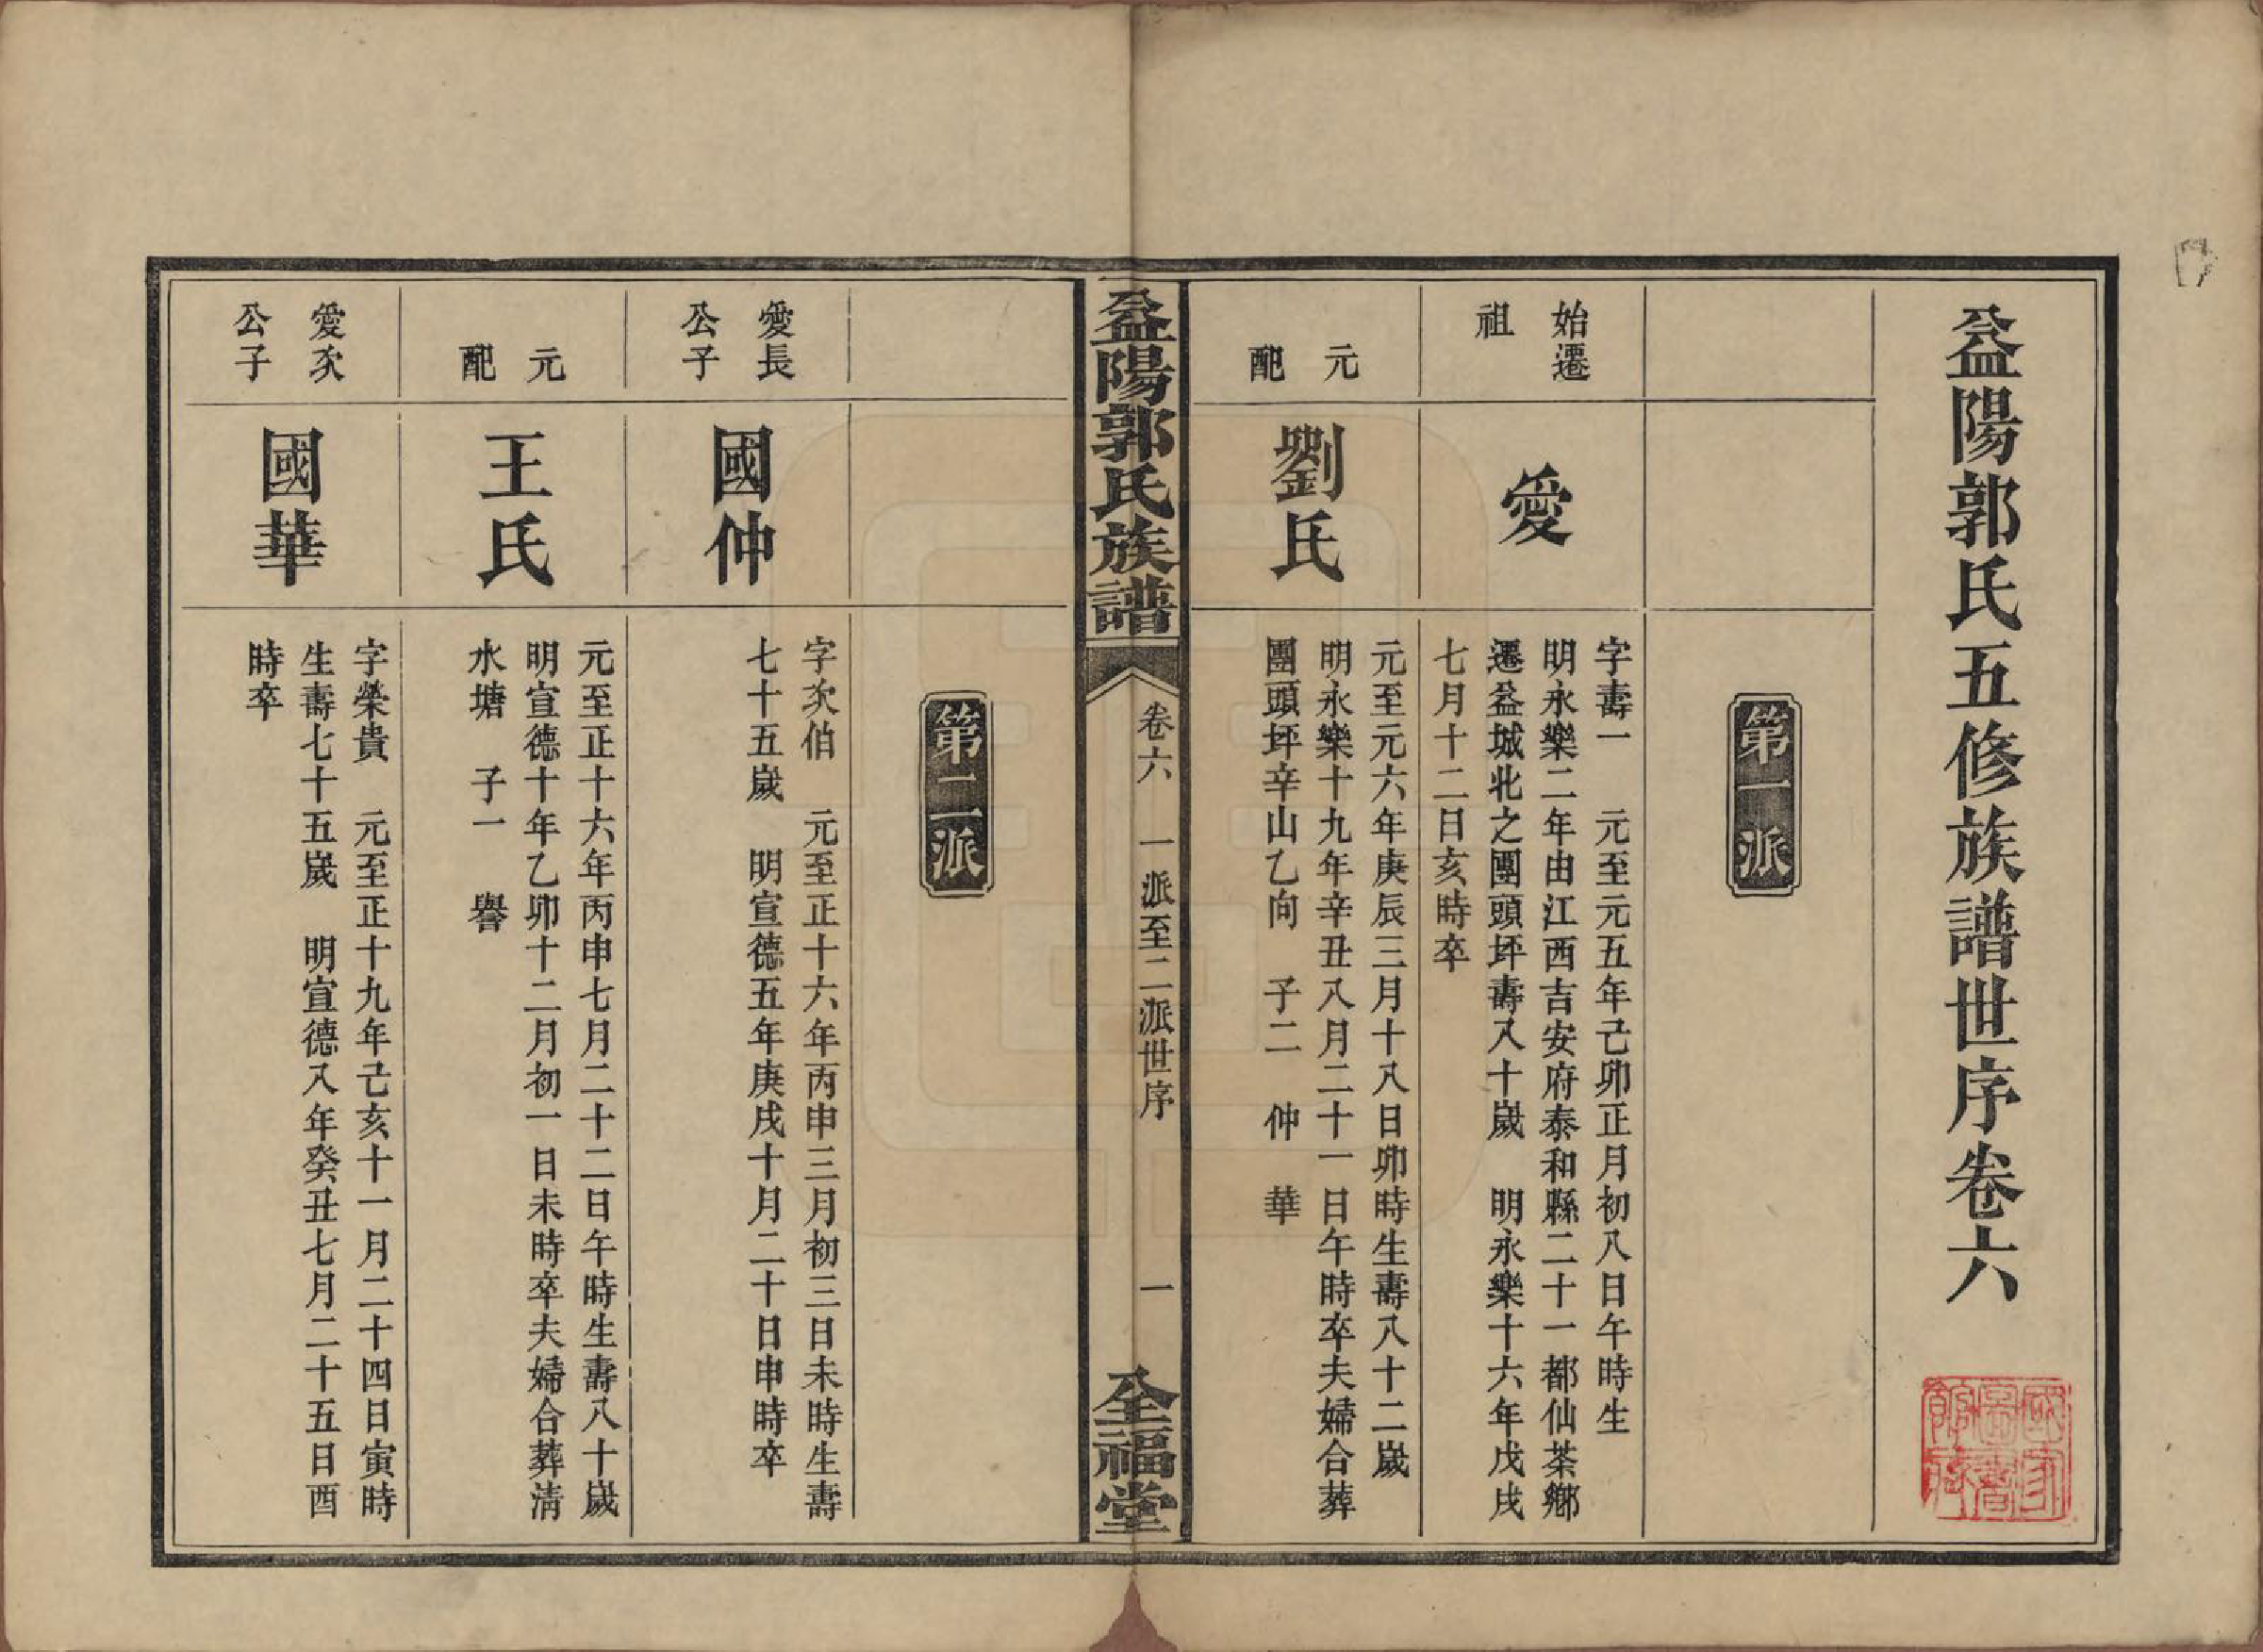 益陽郭氏五修族譜世序卷六
國家圖書館藏
第一派
始遷祖
愛
字壽一　元至元五年己卯正月初八日午時生
明永樂二年由江西吉安府泰和縣二十一都仙茶鄉
遷益城北之團頭坪壽八十歲　明永樂十六年戊戌
七月十二日亥時卒
元配
劉氏
元至元六年庚辰三月十八日卯時生壽八十二歲
明永樂十九年辛丑八月二十一日午時卒夫婦合葬
團頭坪辛山乙向　子二　仲　華
益陽郭氏族譜
卷六　一派至二派世序
一
全福堂
第二派
愛長公子
國仲
字次伯　元至正十六年丙申三月初三日未時生壽
七十五歲　明宣德五年庚戌十月二十日申時卒
元配
王氏
元至正十六年丙申七月二十二日午時生壽八十歲
明宣德十年乙卯十二月初一日未時卒夫婦合葬清
水塘　子一　譽
愛次公子
國華
字榮貴　元至正十九年己亥十一月二十四日寅時
生壽七十五歲　明宣德八年癸丑七月二十五日酉
時卒